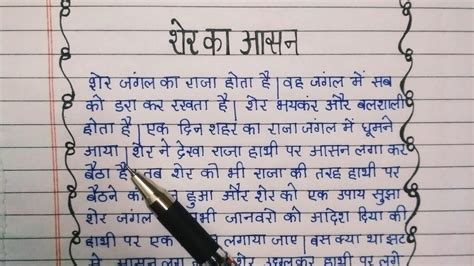 शेर का आसन
शेर जंगल का राजा होता है। वह जंगल में सब
को डरा कर रखता है। शेर भयकंर और बलशाली
होता है। एक दिन शहर का राजा जंगल में घूमने
आया। शेर ने देखा राजा हाथी पर आसन लगा कर
बैठा है। शेर को भी राजा की तरह हाथी पर
बैठने का हुआ और शेर को एक उपाय सुझा
शेर जंगल भी जानवरो को आदेश दिया की
हाथी पर एक लगाया जाए। बस क्या था झट
आसन लग शेर उछलकर हाथी पर